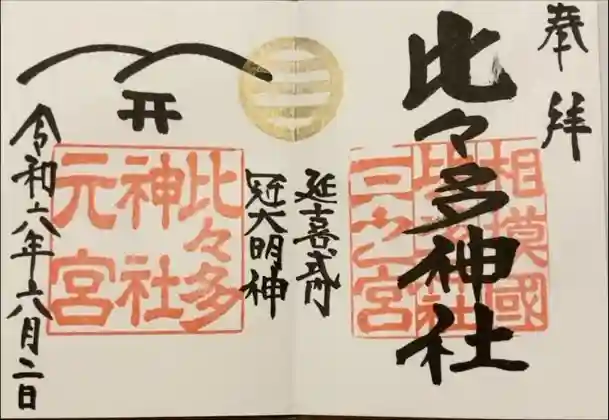 奉拝
比々多神社
相模國
比々多神社
三之宮
延喜式内
冠大明神
比々多
神社
元宮
令和六年六月二日